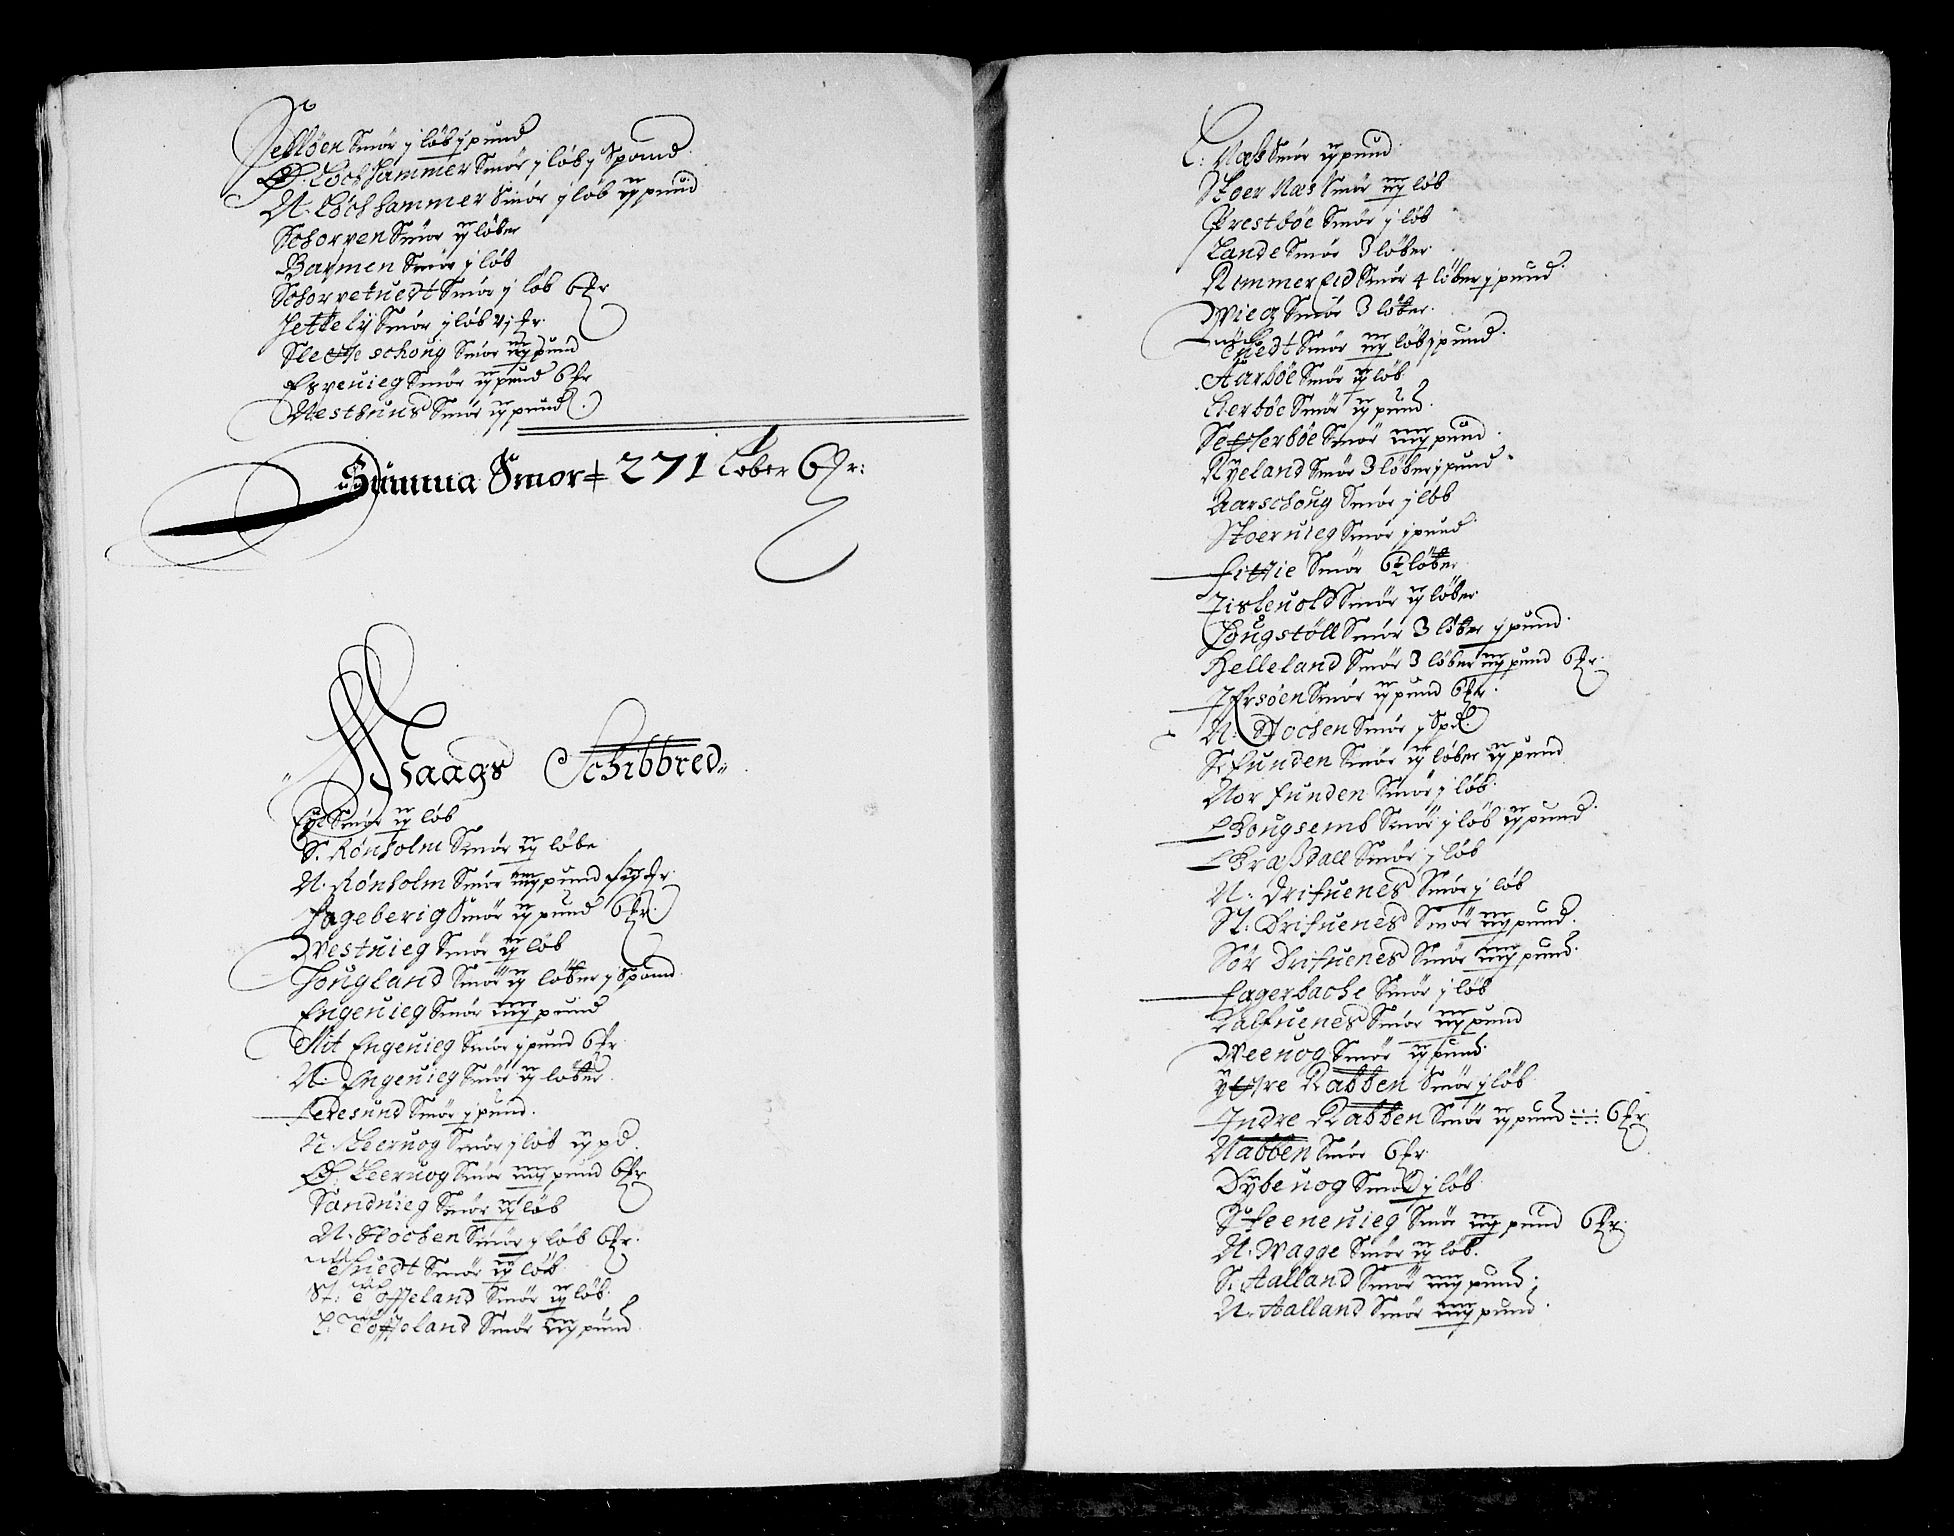 Selöen Smör j löb j pund
Ø. Lochhammer Smör j löb j Spand
N. Lochhammer Smör j löb ij pund
Schorven Smör ij löber
Barmen Smör j löb
Schorvetuedt Smör j löb 6 Mr
Hettely Smör j löb vj Mr.
Slette schoug Smör iij pund
Espeuieg Smör ij pund 6 Mr
Nesthuus Smör ij pund
Summa Smor 271 Löber 6 Mr:
Waags Schibbred
Eye Smör ij löb
S. Rönholm Smör ij löbe
N. Rönholm Smör iiij pund Mr.
Fageberig Smör ij pund 6 Mr.
Westuieg Smör ij löb
Hougland Smör ij löber j Spand
Engeuieg Smör iiij pund
Mit Engeuieg Smör j pund 6 Mr
N. Engeuieg Smör ij löber
Fedesund Smör j pund.
N. Leeruog Smör j löb ij pd.
Ø. Leeruog Smör iiij pund 6 Mr
Sanduieg Smör ij löb
N. Stochen Smör j löb 6 Mr.
Tuedt Smör ij löb
St. Töffteland Smör ij löb.
L. Töffteland Smör iij pund
L. Næs Smör ij pund
Stoer Næs Smör iij löb
Prestböe Smör j löb
Lande Smör 3 löber
Rimmereid Smör 4 löber j pund
Wieg Smör 3 löber.
Tuedt Smör iij löb j pund.
Aarböe Smör ij löb
Lierböe Smör ij pund.
Setterböe Smör iiij pund
Nyeland Smör 3 löber j pund
Aarschoug Smör j löb
Stoeruieg Smör j pund
Fittie Smör 6½ löber
Tisleuold Smör ij löber
Hougstöll Smör 3 löber j pund.
Helleland Smör 3 löber iij pund 6 Mr.
Ersöen Smör ij pund 6 Mr.
N. Stochen Smör j Spd.
S. funden Smör ij löber ij pund
Nor funden Smör j löb.
Hougsemb Smör j löb ij pund
Græsdall Smör j löb
N. Drifuenes Smör j löb
St. Drifuenes Smör iij pund.
Sör Drifuenes Smör iiij pund.
Fagerbache Smör j löb
Dalfuenes Smör iij pund
Weeuog Smör ij pund.
Yttre Rabben Smör j löb
Indre Rabben Smör ij pund 6 Mr
Nabben Smör 6 Mr
Dybeuog Smör j löb
Steeneuieg Smör iij pund 6 Mr.
N. Wagge Smör ij löb.
S. Aalland Smör iiij pund;
N. Aalland Smör iiij pund.